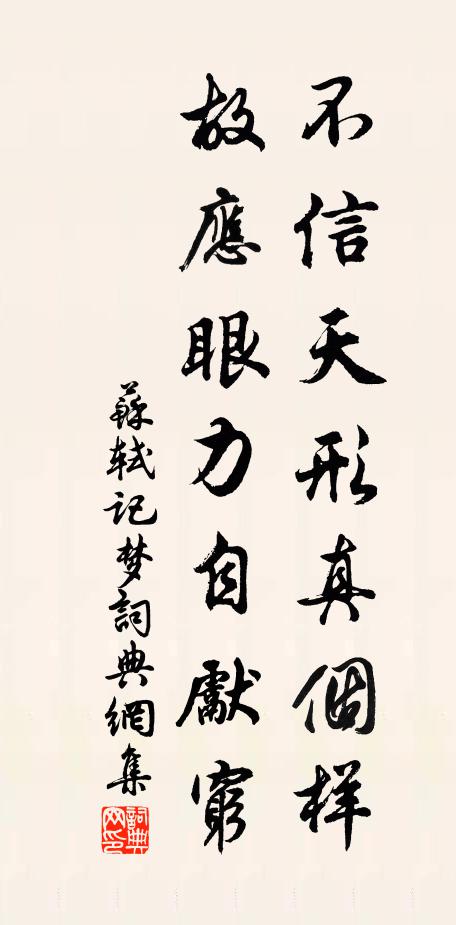 不信天形真個样
故應眼力自獻窮
蘇軾记梦詞典網集
詞典网印